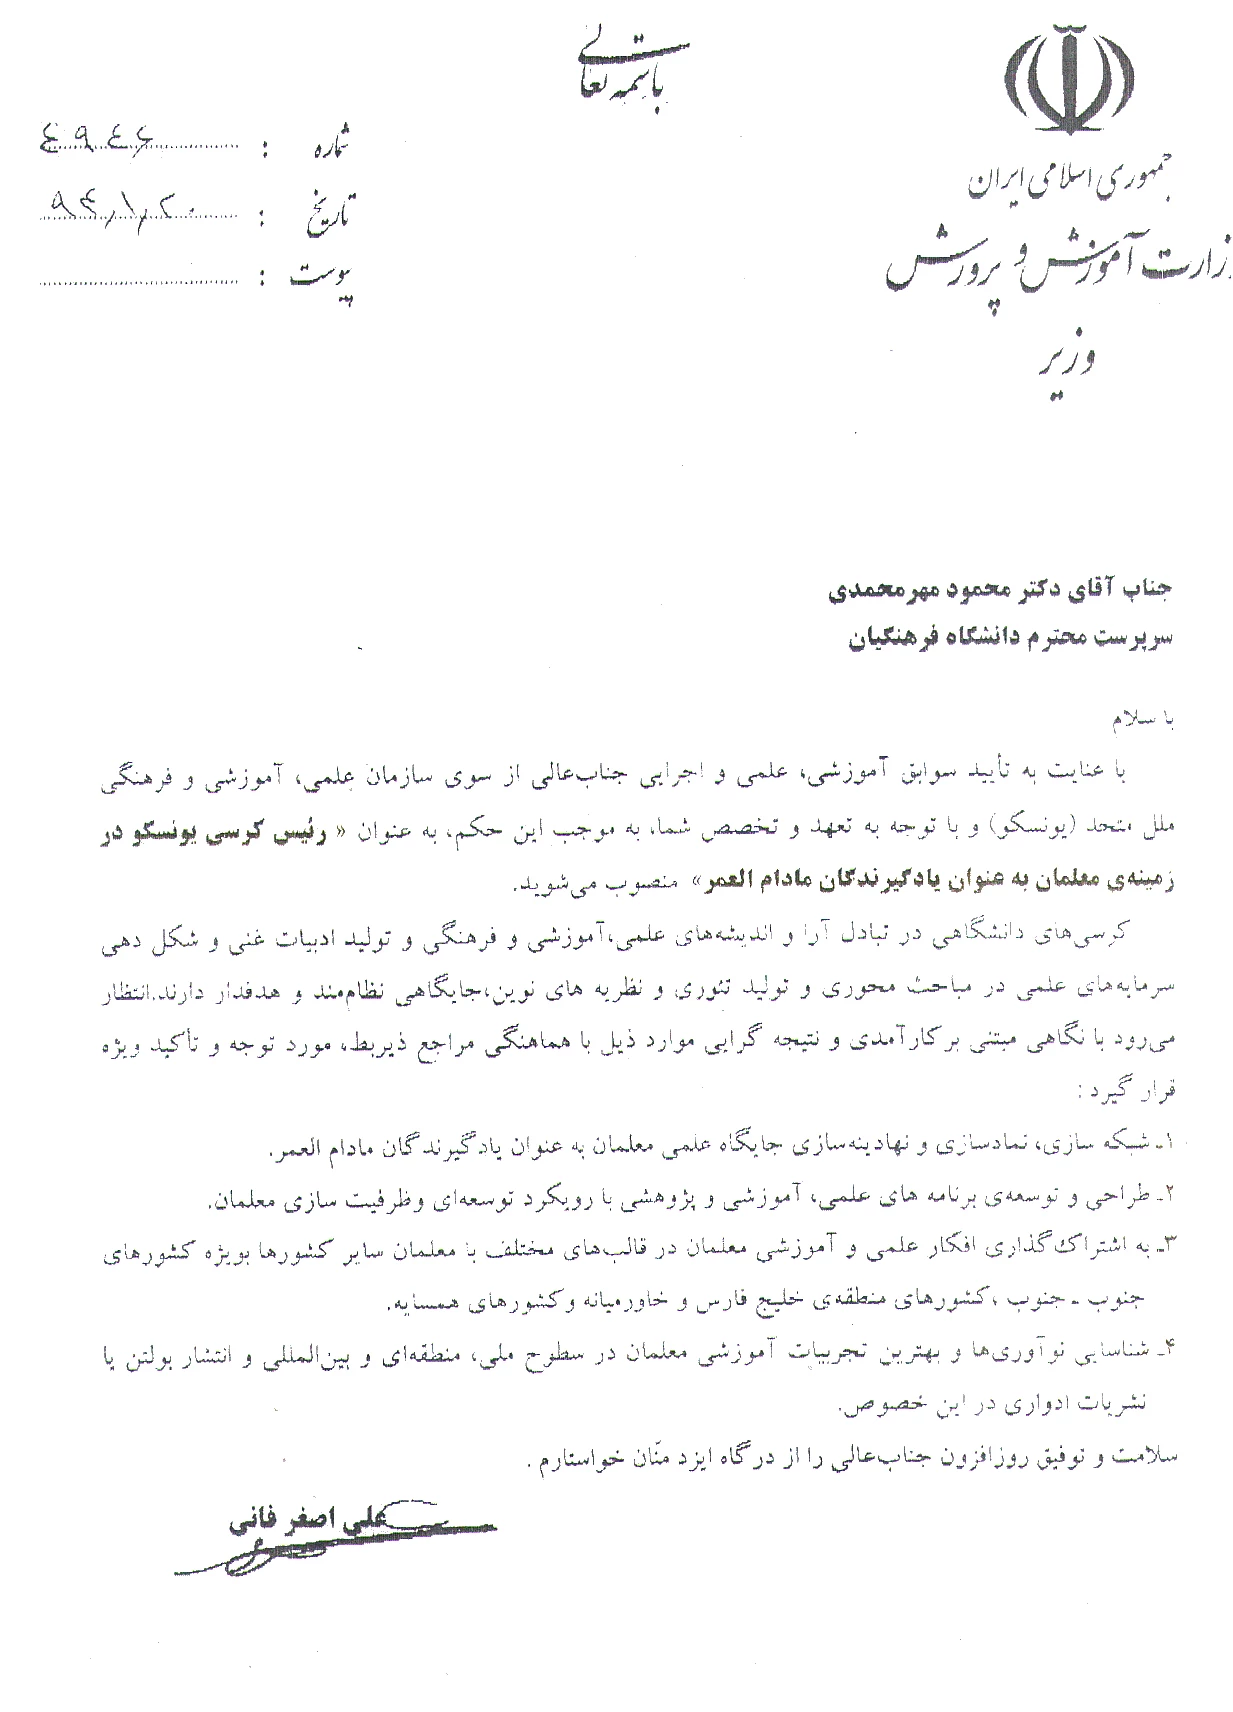 باسمه تعالی
جمهوری اسلامی ایران
وزارت آموزش و پرورش
وزیر
شماره : ٤٩٤٦
تاریخ : ٩٤/١/٢٠
پیوست :
جناب آقای دکتر محمود مهرمحمدی
سرپرست محترم دانشگاه فرهنگیان
با سلام
با عنایت به تأیید سوابق آموزشی، علمی و اجرایی جناب‌عالی از سوی سازمان علمی، آموزشی و فرهنگی
ملل متحد (یونسکو) و با توجه به تعهد و تخصص شما، به موجب این حکم، به عنوان « رئیس کرسی یونسکو در
زمینه‌ی معلمان به عنوان یادگیرندگان مادام العمر» منصوب می‌شوید.
کرسی‌های دانشگاهی در تبادل آرا و اندیشه‌های علمی،آموزشی و فرهنگی و تولید ادبیات غنی و شکل دهی
سرمایه‌های علمی در مباحث محوری و تولید تئوری و نظریه های نوین،جایگاهی نظام‌مند و هدفدار دارند.انتظار
می‌رود با نگاهی مبتنی برکارآمدی و نتیجه گرایی موارد ذیل با هماهنگی مراجع ذیربط، مورد توجه و تأکید ویژه
قرار گیرد :
۱ـ شبکه سازی، نمادسازی و نهادینه‌سازی جایگاه علمی معلمان به عنوان یادگیرندگان مادام العمر.
۲ـ طراحی و توسعه‌ی برنامه های علمی، آموزشی و پژوهشی با رویکرد توسعه‌ای وظرفیت سازی معلمان.
۳ـ به اشتراک‌گذاری افکار علمی و آموزشی معلمان در قالب‌های مختلف با معلمان سایر کشورها بویژه کشورهای
جنوب ـ جنوب ،کشورهای منطقه‌ی خلیج فارس و خاورمیانه وکشورهای همسایه.
۴ـ شناسایی نوآوری‌ها و بهترین تجربیات آموزشی معلمان در سطوح ملی، منطقه‌ای و بین‌المللی و انتشار بولتن یا
نشریات ادواری در این خصوص.
سلامت و توفیق روزافزون جناب‌عالی را از درگاه ایزد منّان خواستارم .
علی اصغر فانی